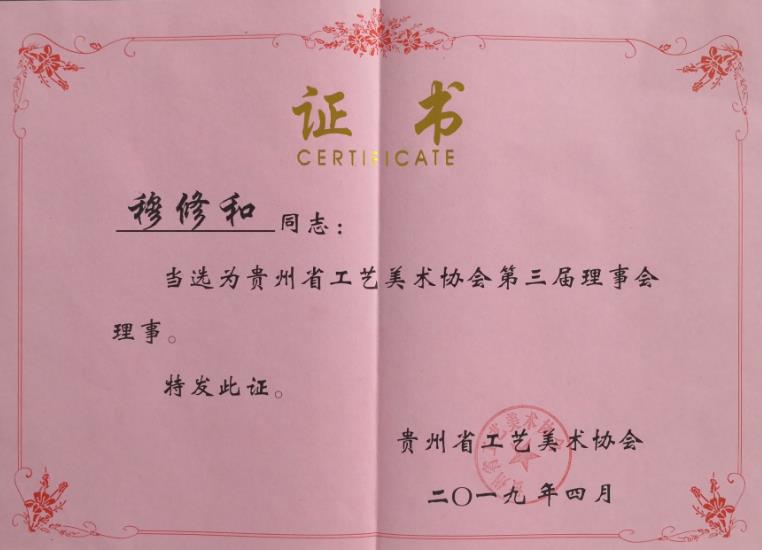 证书
CERTIFICATE
穆修和同志：
当选为贵州省工艺美术协会第三届理事会
理事。
特发此证。
贵州省工艺美术协会
贵州省工艺美术协会
二〇一九年四月